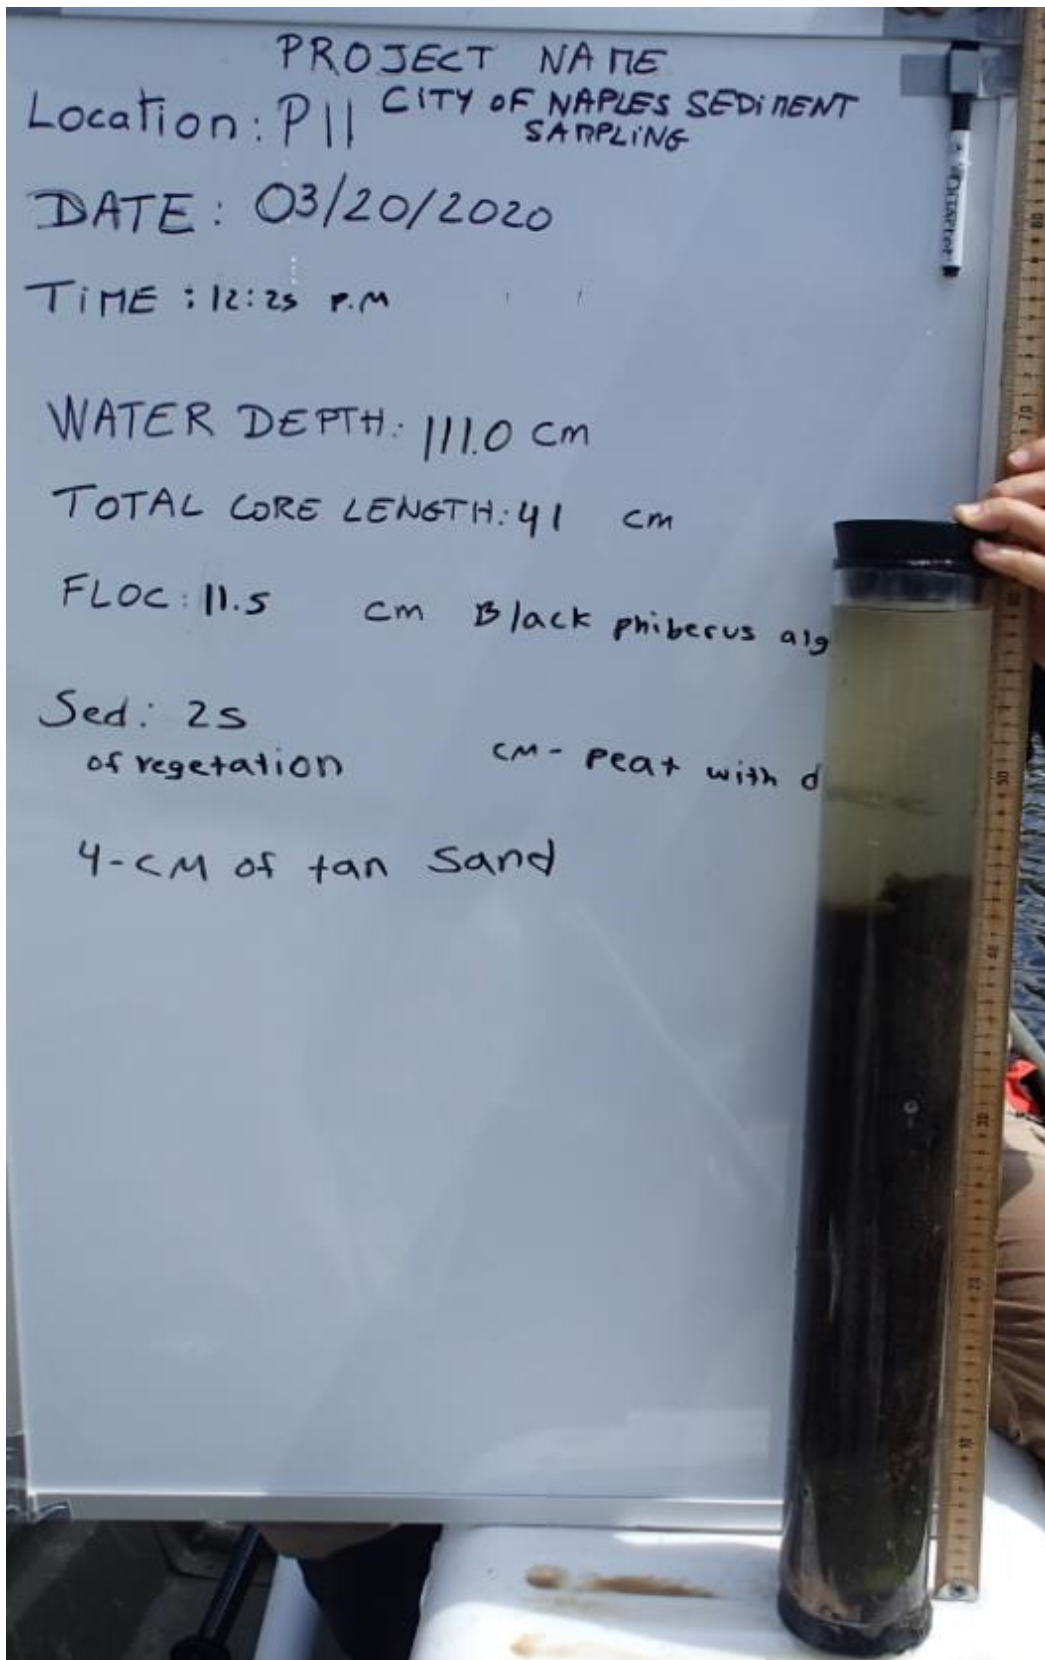 PROJECT NAME
Location: P11 CITY OF NAPLES SEDIMENT
SAMPLING
DATE: 03/20/2020
TiME: 12:25 P.M
WATER DEPTH: 111.0 cm
TOTAL CORE LENGTH: 41 cm
FLOC: 11.5 cm Black phiberus alg
Sed: 25
of regetation cm- peat with d
4-CM of tan sand
60
70
50
40
30
20
10